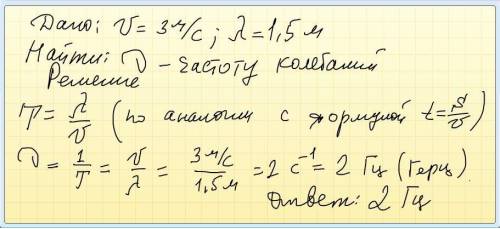 Дано: v = 3 м/с ; λ = 1,5 м
Найти: ν – частоту колебаний
Решение
T = λ/v (по аналогии с формулой t = S/v)
ν = 1/T = v/λ = 3 м/с / 1,5 м = 2 с⁻¹ = 2 Гц (Герц).
Ответ: 2 Гц